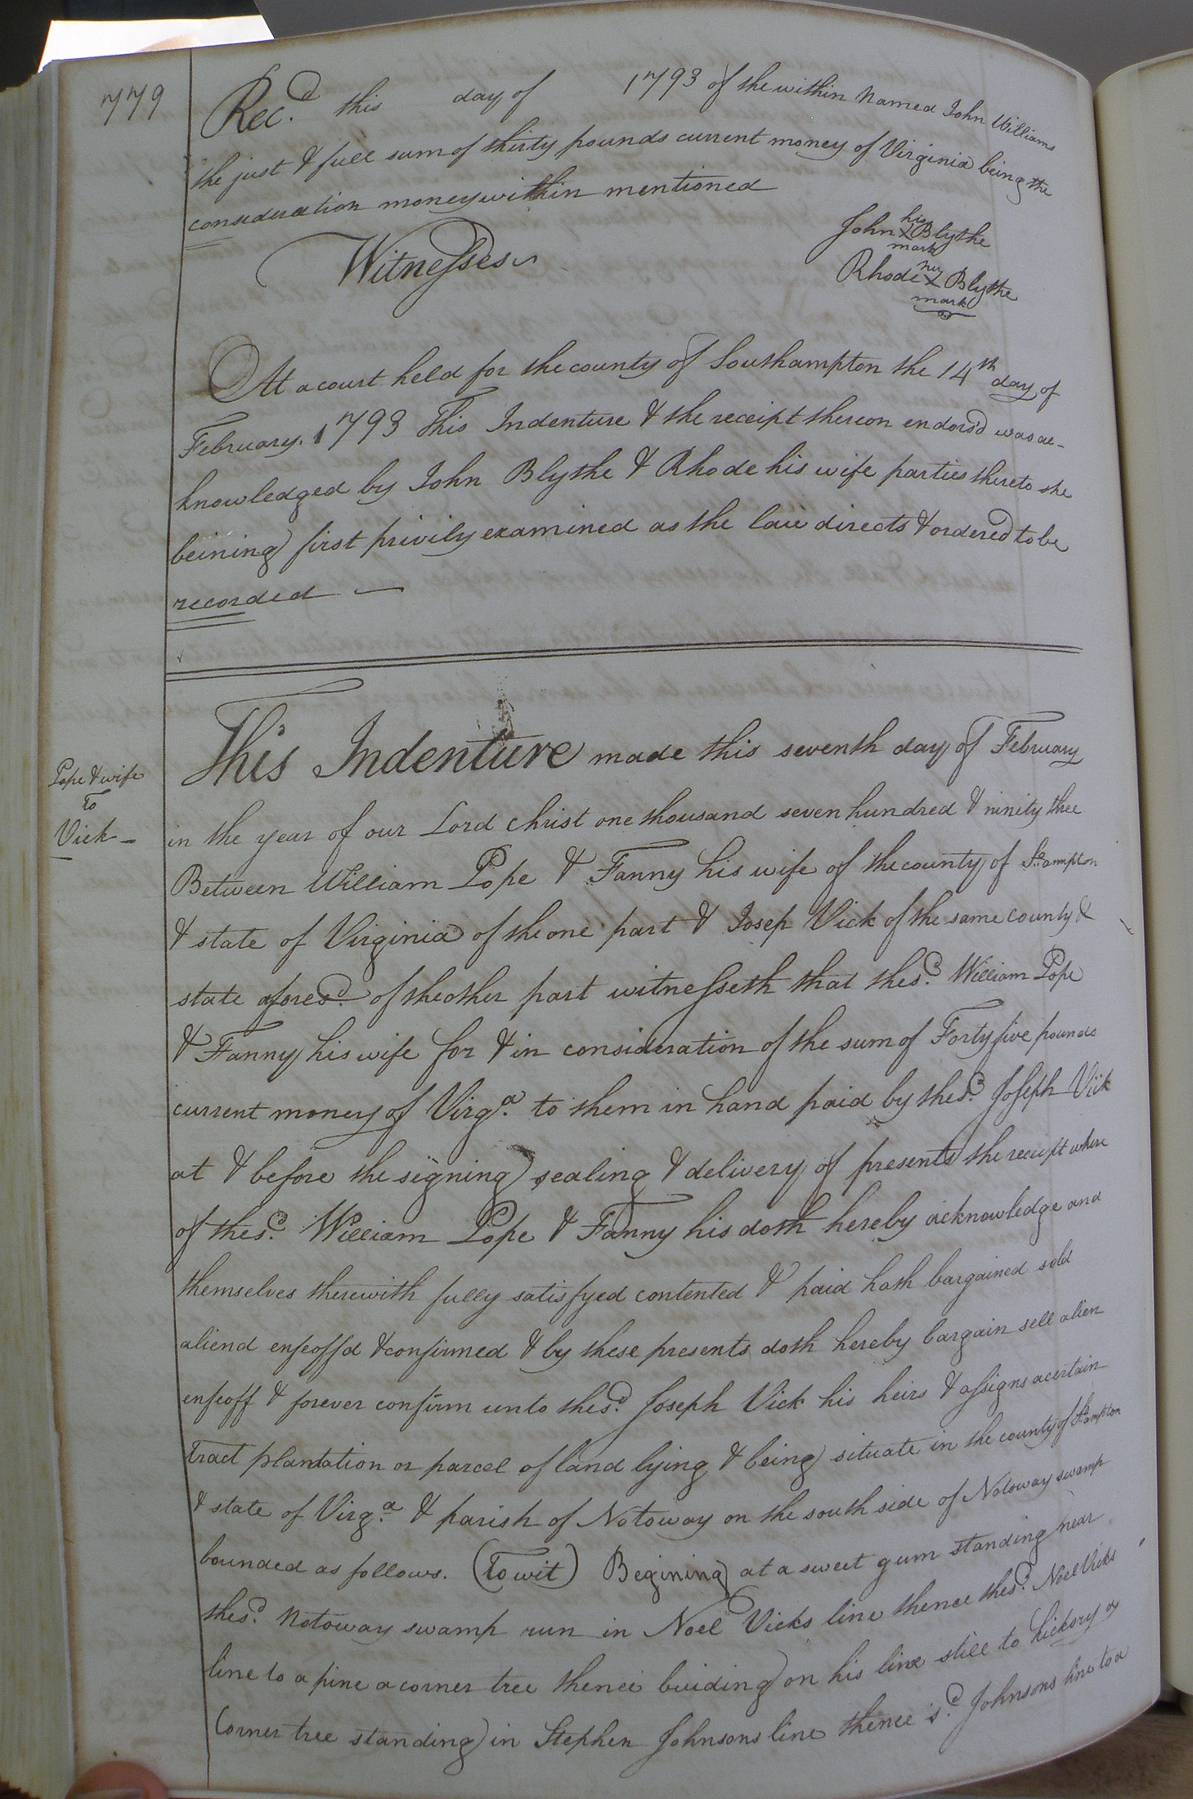 779
Rec.d this day of 1793 of the within Named John Williams
the just & full sum of thirty pounds current money of Virginia being the
consideration money within mentioned
Witnesses
John his X mark Blythe
Rhode her X mark Blythe
At a court held for the county of Southampton the 14th day of
February. 1793 This Indenture & the receipt thereon endorsd was ac-
knowledged by John Blythe & Rhode his wife parties thereto she
beining first privily examined as the law directs & ordered to be
recorded
Pope & wife
To
Vick
This Indenture made this seventh day of February
in the year of our Lord Christ one thousand seven hundred & ninity thee
Between William Pope & Fanny his wife of the county of S:ampton
& state of Virginia of the one part & Josep Vick of the same county &
state afores.d of the other part witnesseth that the s.d William Pope
& Fanny his wife for & in consideration of the sum of Forty five pounds
current money of Virg.a to them in hand paid by the s.d Joseph Vick
at & before the signing sealing & delivery of presents the receipt where
of the s.d William Pope & Fanny his doth hereby acknowledge and
themselves therewith fully satisfyed contented & paid hath bargained sold
aliend enfeoffd & confirmed & by these presents doth hereby bargain sell alien
enfeoff & forever confirm unto the s.d Joseph Vick his heirs & assigns a certain
Tract plantation or parcel of land lying & being situate in the county of S:ampton
& state of Virg.a & parish of Notoway on the south side of Notoway swamp
bounded as follows. (To wit) Begining at a sweet gum standing near
the s.d Notoway swamp run in Noel Vicks line thence the s.d Noel Vicks
line to a pine a corner tree thence buiding on his line still to hickory a
Corner tree standing in Stephen Johnsons line thence s.d Johnsons line to a